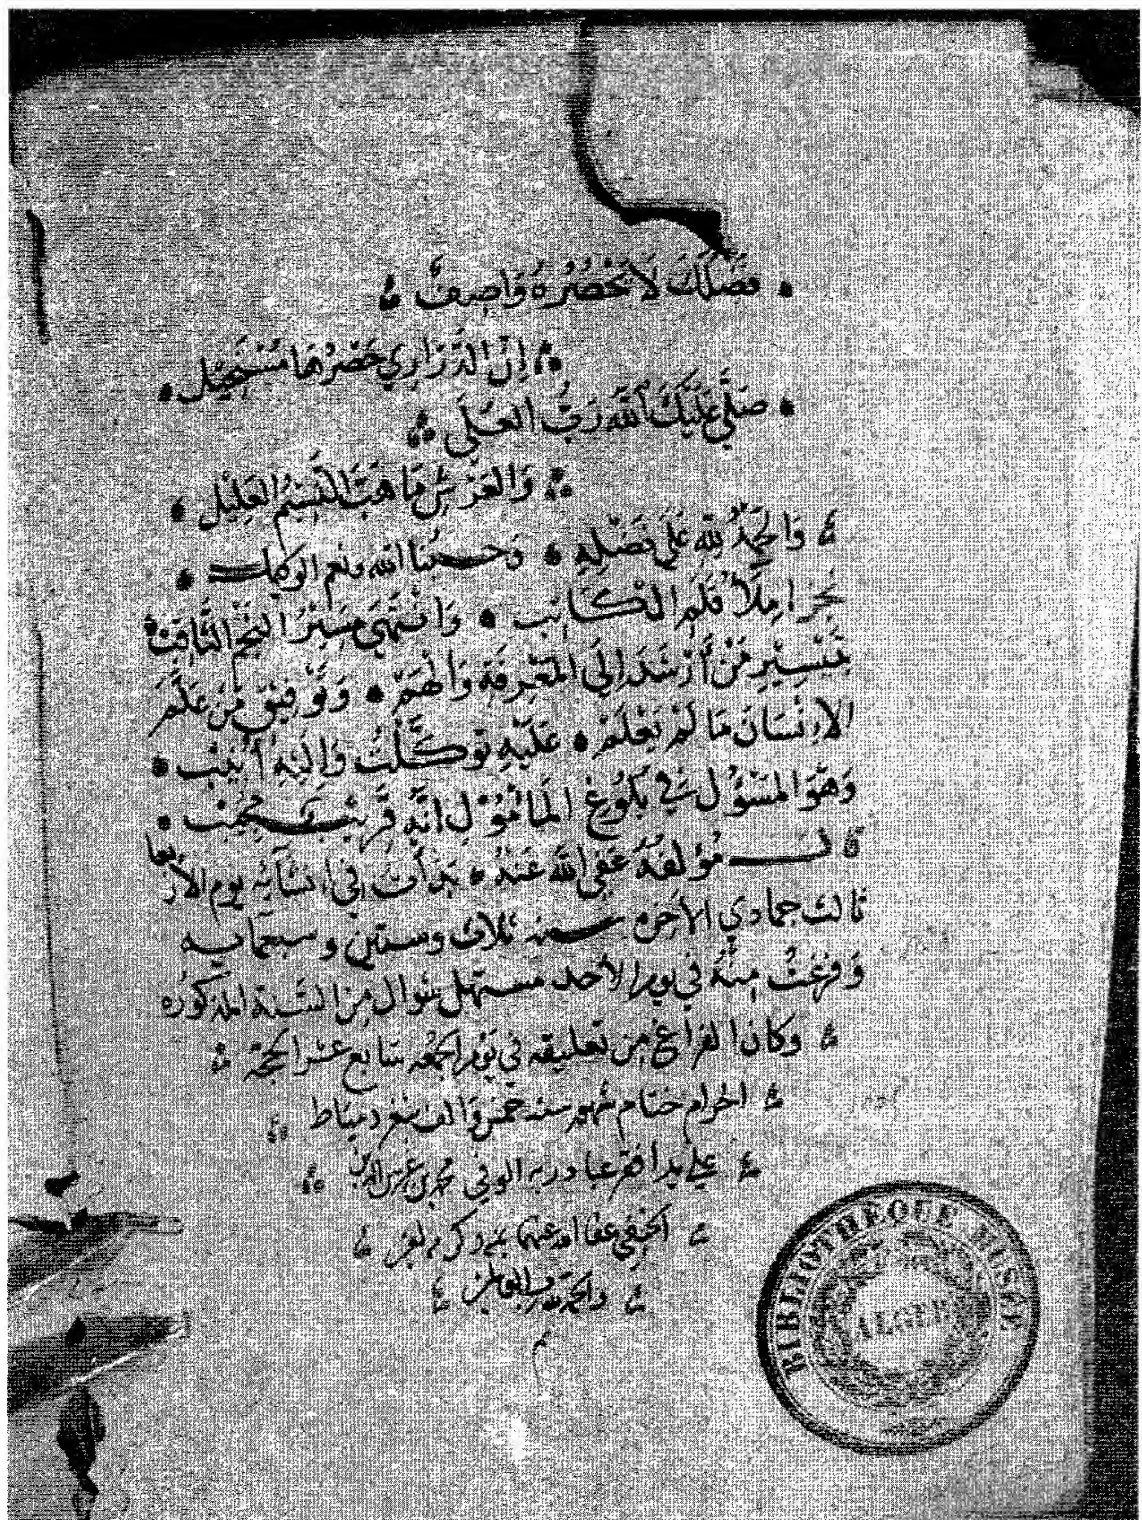 فَضْلُكَ لَا يَحْصُرُهُ وَاصِفٌ
إِنَّ الدَّرَارِي حَصْرُهَا مُسْتَحِيل
صَلَّى عَلَيْكَ اللهُ رَبُّ العُلَى
وَالعَرْشِ مَا هَبَّ النَّسِيمُ العَلِيل
وَالحَمْدُ للهِ عَلَى فَضْلِهِ وَحسبُنَا الله ونعم الوكيل
قَلَمِ الكَاتِب وَانْتَهَى مَسِيرُ النَّجْمِ الثَّاقِب
بِتَيْسِيرِ مَنْ أَرْشَدَ إِلَى المَعْرِفَةِ وَأَلْهَمَ وَتَوْفِيقِ مَنْ عَلَّمَ
الإِنْسَانَ مَا لَمْ يَعْلَمْ عَلَيْهِ تَوَكَّلْتُ وَإِلَيْهِ أُنِيْب
وَهُوَ المَسْؤُل فِي بُلُوغِ المَأْمُوْلِ اِنَّهُ قَرِيْبٌ مُجِيْب
قال مُؤلفهُ عَفى اللهُ عَنْهُ بَدَأت في انشَآئِه يوم الأربعا
ثالث جمادي الأخره سنه ثلاث وستين وسبعمايه
وَفرغتُ مِنْهُ في يوم الأحد مستهل شوال مِن السَّنة المذكوره
وكان الفراغ مِن تعليقه في يَوْم الجمُعه سَابع عشر الحجّة
الحرام ختام شهور سنه خمس وَالف بثغر دمياط
علي يد افقر عباد ربه الوفي محمد بن غرس الدين
الحنفي عفا الله عنهما بمنه وكرمه
والحمد لله رب العالمين
BIBLIOTHÈQUE MUSÉE
ALGER